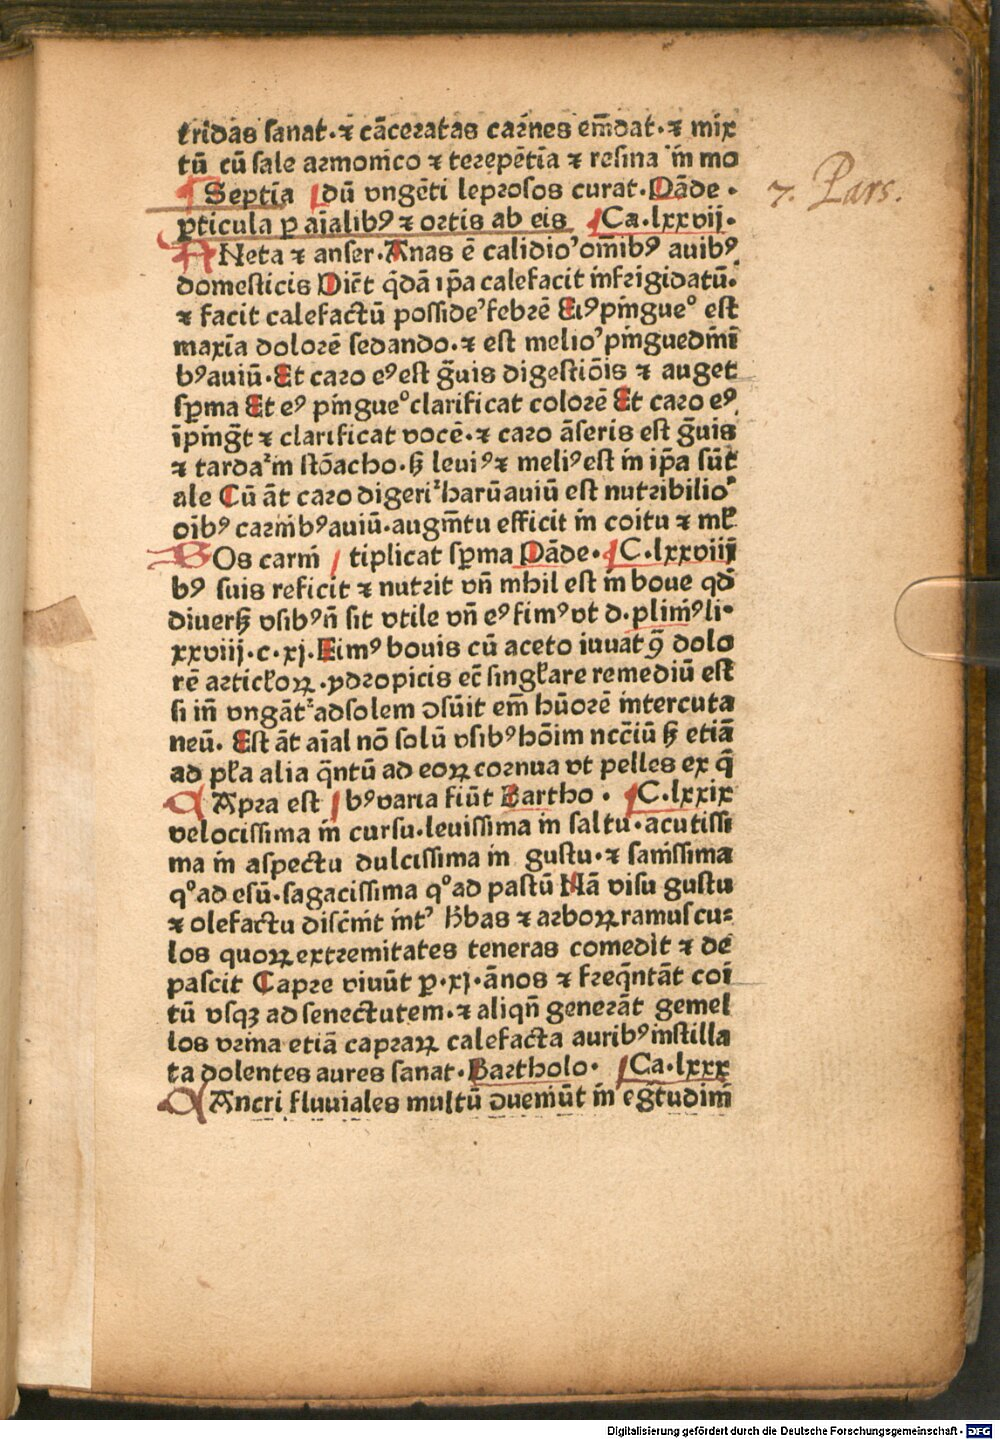 tridas sanat·⁊ cãceratas carnes em̃dat·⁊ mix
tũ cũ sale armonico ⁊ terepẽtĩa ⁊ resina in mo
¶ Septĩa dũ vngẽti leprosos curat·Pãde·
pticula p aĩalibꝰ ⁊ ortis ab eis ¶Ca·lxxvij·
ANeta ⁊ anser·Anas ẽ calidio' om̃ibꝰ auibꝰ
domesticis Dic̃t q̃dã ip̃a calefacit infrigidatũ·
⁊ facit calefactũ posside' febrẽ Eiꝰ pingue° est
maxĩa dolorẽ sedando·⁊ est melio' pinguedinĩ
bꝰ auiũ·Et caro eꝰ est g̃uis digestiõis ⁊ auget
sp̱ma Et eꝰ pingue° clarificat colorẽ Et caro eꝰ
ĩping̃t ⁊ clarificat vocẽ·⁊ caro ãseris est g̃uis
⁊ tarda² in stõacho·ꜩ leuiꝰ ⁊ meliꝰ est in ip̃a sũt
ale Cũ ãt caro digeri² harũ auiũ est nutribilio'
oĩbꝰ carnibꝰ auiũ·augm̃tu efficit in coitu ⁊ ml̃
BOs carni tiplicat sp̱ma Pãde·¶C·lxxviij
bꝰ suis reficit ⁊ nutrit vñ nihil est in boue qd̃
diuersꜩ vsibꝰ ñ sit vtile vñ eꝰ fimꝰ vt d·pliniꝰ li·
xxviij·c·xj·Fimꝰ bouis cũ aceto iuuat ꝯ dolo
rẽ articl̃oꝝ·ydropicis ec̃ singl̃are remediũ est
si iñ vngãt² ad solem ꝯsũit em̃ hũorẽ intercuta
neũ· Est ãt aĩal nõ solũ vsibꝰ hõim nc̃c̃iũ ꜩ etiã
ad pl̃a alia q̃ntũ ad eoꝝ cornua vt pelles ex q̃
CApra est bꝰ varia fiũt Bartho· ¶C·lxxix
velocissima in cursu·leuissima in saltu·acutissi
ma in aspectu dulcissima in gustu·⁊ sanissima
q°ad esũ·sagacissima q°ad pastũ Nã visu gustu
⁊ olefactu disc̃nit int' h̃bas ⁊ arboꝝ ramuscu=
los quoꝝ extremitates teneras comedit ⁊ de
pascit Capre viuũt p·xj·ãnos ⁊ freq̃ntãt coĩ
tũ vsqꝫ ad senectutem·⁊ aliqñ generãt gemel
los vrina etiã capraꝝ calefacta auribꝰ instilla
ta dolentes aures sanat·Bartholo· ¶Ca·lxxx
CAncri fluuiales multũ ꝯueniũt in eg̃tudini
7. Pars.
Digitalisierung gefördert durch die Deutsche Forschungsgemeinschaft - DFG